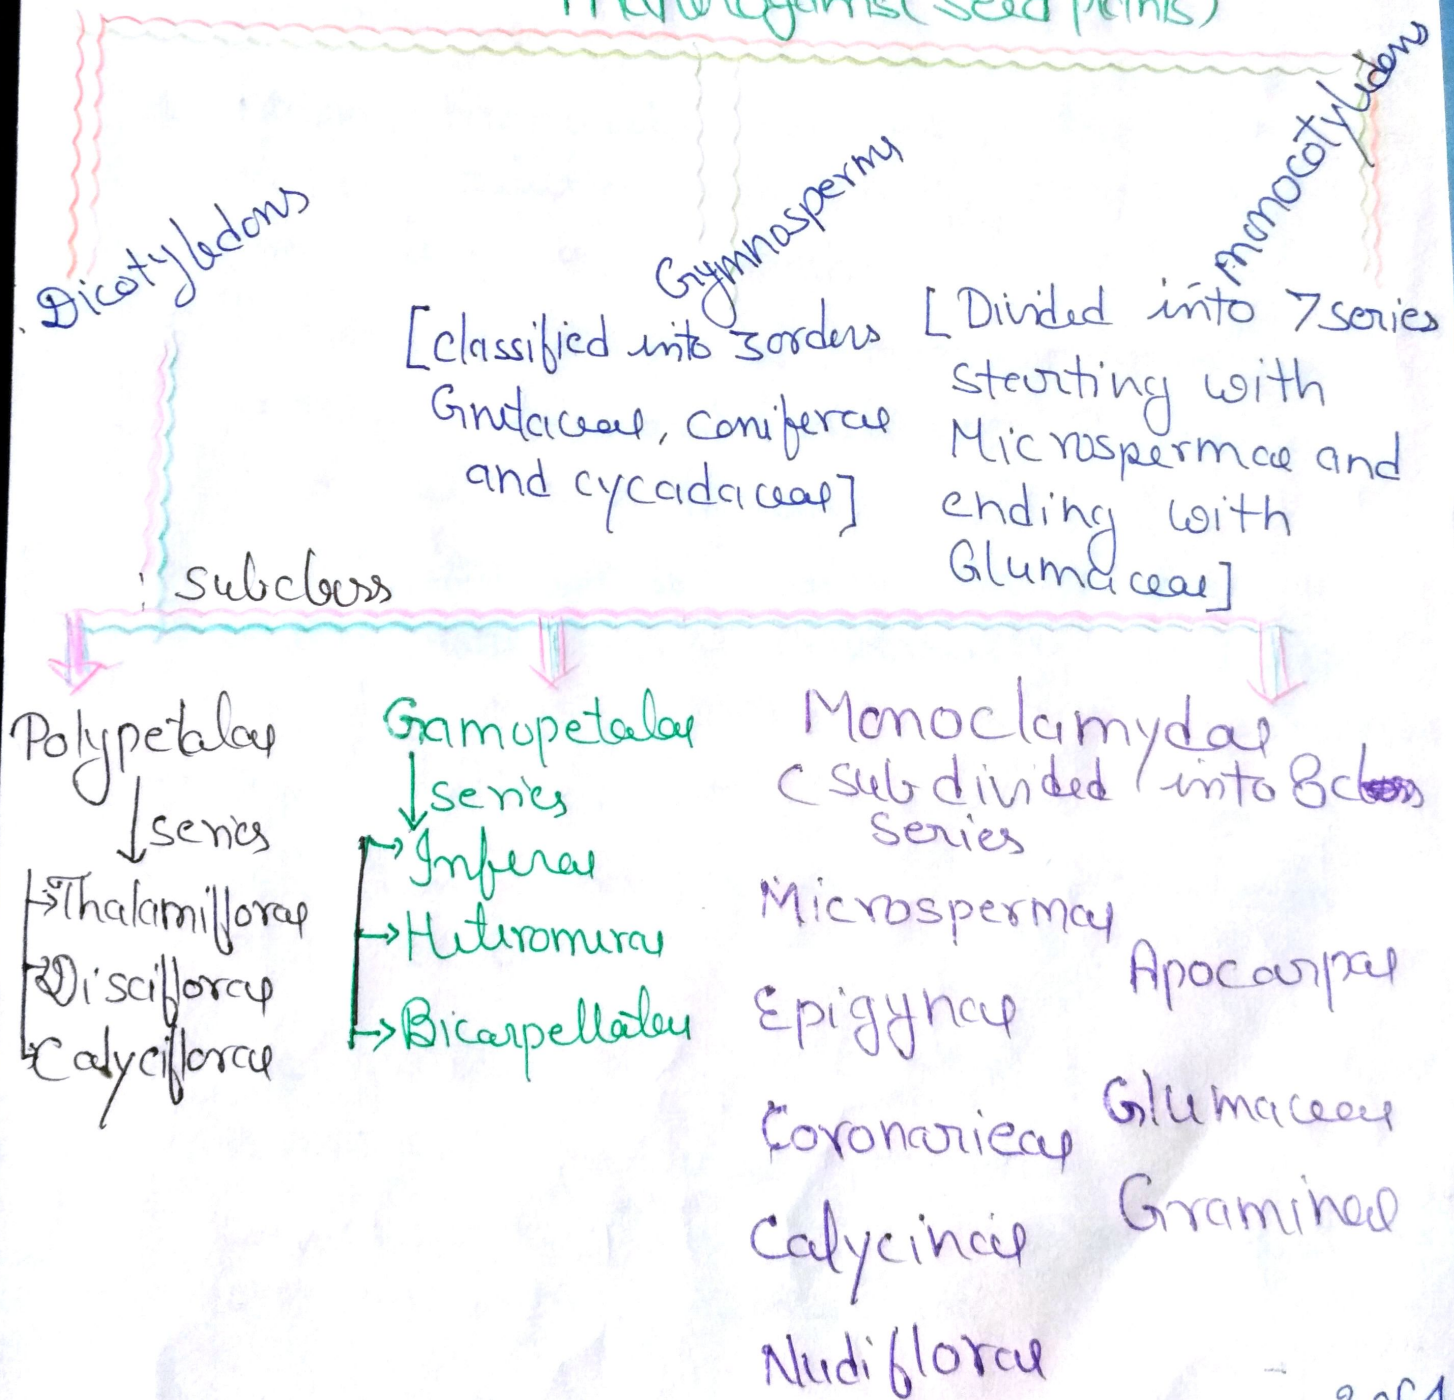 (Seed plants)
Dicotyledons
Gymnosperms
Monocotyledons
[classified into 3 orders
Gnetaceae, coniferae
and cycadaceae]
[Divided into 7 series
starting with
Microspermae and
ending with
Glumaceae]
: subclass
Polypetalae
series
Thalamiflorae
Disciflorae
Calyciflorae
Gamopetalae
series
Inferae
Heteromerae
Bicarpellatae
Monoclamydae
(subdivided into 8
series
Microspermae
Epigynae
Coronarieae
Calycinae
Nudiflorae
Apocarpae
Glumaceae
Gramineae